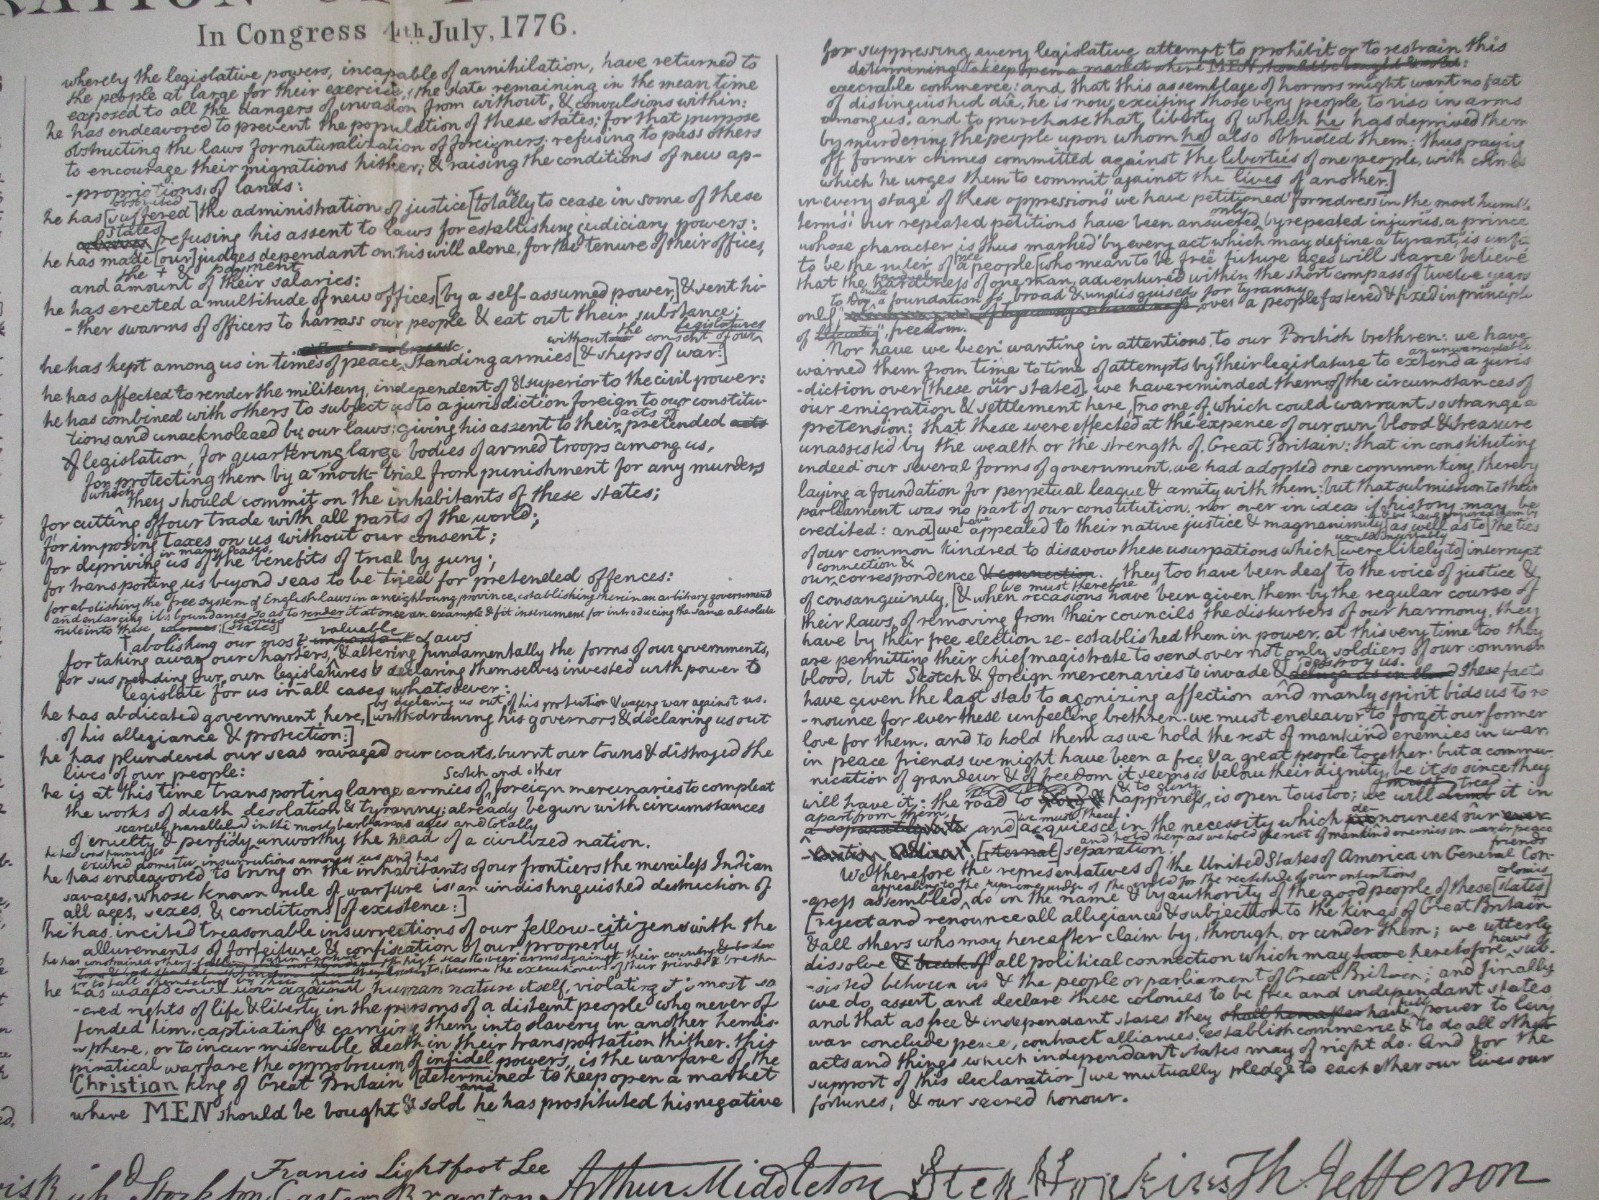 In Congress 4th July, 1776.
whereby the legislative powers, incapable of annihilation, have returned to
the people at large for their exercise, the state remaining in the mean time
exposed to all the dangers of invasion from without, & convulsions within:
he has endeavored to prevent the population of these states; for that purpose
obstructing the laws for naturalization of foreigners; refusing to pass others
to encourage their migrations hither; & raising the conditions of new ap-
-propriations of lands:
obstructed by
he has [suffered] the administration of justice [totally to cease in some of these
states
[refusing his assent to laws for establishing judiciary powers:
he has made [our] judges dependant on his will alone, for the tenure of their offices,
the + & payment
and amount of their salaries:
he has erected a multitude of new offices [by a self-assumed power,] & sent hi-
-ther swarms of officers to harrass our people & eat out their substance;
without the consent of our legislatures
he has kept among us in times of peace, standing armies [& ships of war:]
he has affected to render the military, independent of & superior to the civil power:
he has combined with others to subject us to a jurisdiction foreign to our constitu-
acts of
tions and unacknoleaed by our laws; giving his assent to their pretended acts
of legislation, for quartering large bodies of armed troops among us,
for protecting them by a mock-trial from punishment for any murders
which they should commit on the inhabitants of these states;
for cutting off our trade with all parts of the world;
for imposing taxes on us without our consent;
in many cases,
for depriving us of the benefits of trial by jury;
for transporting us beyond seas to be tried for pretended offences:
for abolishing the free system of English laws in a neighbouring province, establishing therein an arbitrary government
and enlarging its boundaries so as to render it at once an example & fit instrument for introducing the same absolute
rule into these colonies; [states]
valuable
abolishing our most important laws
for taking away our charters, & altering fundamentally the forms of our governments,
for suspending our own legislatures & declaring themselves invested with power to
legislate for us in all cases whatsoever:
by declaring us out of his protection & waging war against us.
he has abdicated government here, [withdrawing his governors & declaring us out
of his allegiance & protection:]
he has plundered our seas ravaged our coasts, burnt our towns & distroyed the
lives of our people:
Scotch and other
he is at this time transporting large armies of foreign mercenaries to compleat
the works of death desolation & tyranny; already begun with circumstances
scarcely paralleled in the most barbarous ages and totally
of cruelty & perfidy unworthy the head of a civilized nation.
excited domestic insurrections amongst us and has
he has endeavored to bring on the inhabitants of our frontiers the merciless Indian
savages, whose known rule of warfare is an undistinguished destruction of
all ages, sexes, & conditions [of existence:]
[he has incited treasonable insurrections of our fellow-citizens with the
allurements of forfeiture & confiscation of our property
he has waged cruel war against human nature itself, violating it's most sa-
-cred rights of life & liberty in the persons of a distent people who never of
fended him, captivating & carrying them into slavery in another hemis-
-phere, or to incur miserable death in their transportation thither. this
piratical warfare the opprobrium of infidel powers, is the warfare of the
Christian king of Great Britain [determined to keep open a market
and
where MEN should be bought & sold he has prostituted his negative
for suppressing every legislative attempt to prohibit or to restrain this
determining to keep open a market where MEN should be bought & sold:
execrable commerce: and that this assemblage of horrors might want no fact
of distinguished die, he is now exciting those very people to rise in arms
among us, and to purchase that liberty of which he has deprived them
by murdering the people upon whom he also obtruded them: thus paying
off former crimes committed against the liberties of one people, with crimes
which he urges them to commit against the lives of another.]
in every stage of these oppressions we have petitioned for redress in the most humble
only
terms: our repeated petitions have been answered by repeated injuries. a prince
whose character is thus marked by every act which may define a tyrant, is unfit
free
to be the ruler of a people [who mean to be free future ages will scarce believe
that the hardiness of one man, adventured within the short compass of twelve years
build
to lay a foundation so broad & undisguised for tyranny
only over a people fostered & fixed in principle
of liberty freedom.
Nor have we been wanting in attentions to our British brethren: we have
an unwarrantable
warned them from time to time of attempts by their legislature to extend a juris
us
-diction over [these our states], we have reminded them of the circumstances of
our emigration & settlement here, [no one of which could warrant so strange a
pretension: that these were effected at the expence of our own blood & treasure
unassisted by the wealth or the strength of Great Britain: that in constituting
indeed our several forms of government, we had adopted one common king, thereby
laying a foundation for perpetual league & amity with them: but that submission to their
parliament was no part of our constitution, nor ever in idea if history may be
have
credited: and] we appealed to their native justice & magnanimity [as well as to] the ties
would inevitably
of our common kindred to disavow these usurpations which [were likely to] interrupt
connection &
our correspondence & connection. they too have been deaf to the voice of justice &
we must therefore
of consanguinity, [& when occasions have been given them by the regular course of
their laws, of removing from their councils the disturbers of our harmony, they
have by their free election re-established them in power, at this very time too they
are permitting their chief magistrate to send over not only soldiers of our common
destroy us.
blood, but Scotch & foreign mercenaries to invade & deluge us in blood these facts
have given the last stab to agonizing affection and manly spirit bids us to re
-nounce for ever these unfeeling brethren. we must endeavor to forget our former
love for them, and to hold them as we hold the rest of mankind enemies in war
in peace friends we might have been a free & a great people together. but a commu-
nication of grandeur & of freedom it seems is below their dignity, be it so since they
& to glory
will have it: the road to happiness, is open to us too; we will it in
apart from them,
and] acquiesce in the necessity which denounces our
and hold them as we hold the rest of mankind enemies in war in peace
[eternal] separation! friends
We therefore the representatives of the United States of America in General Con-
appealing to the supreme judge of the world for the rectitude of our intentions colonies
-gress assembled, do in the name & by authority of the good people of these [states]
[reject and renounce all allegiances & subjection to the kings of Great Britain
& all others who may hereafter claim by, through, or under them; we utterly
have
dissolve & break off all political connection which may have heretofore sub-
-sisted between us & the people or parliament of Great Britain; and finally
we do assert, and declare these colonies to be free and independant states
full
and that as free & independant states they shall hereafter have power to levy
war conclude peace, contract alliances, establish commerce & to do all other
acts and things which independant states may of right do. And for the
support of this declaration] we mutually pledge to each other our lives our
fortunes, & our sacred honour.
Francis Lightfoot Lee
Arthur Middleton Step Hopkins Th Jefferson
Stockton Carter Braxton